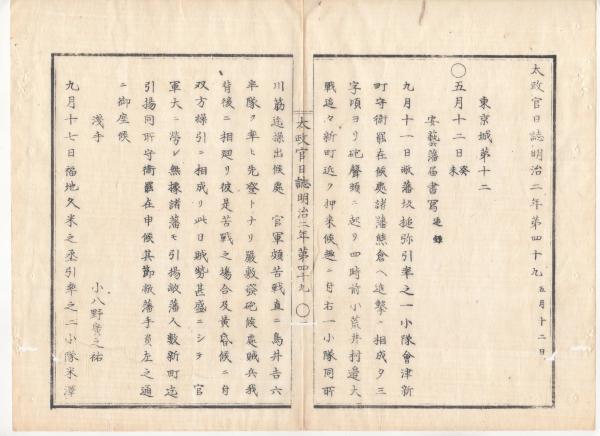 太政官日誌明治二年第四十九 五月十二日
東京城第十二
〇五月十二日 癸未
安藝藩届書写 追録
九月十一日敝藩坂槌弥引率之一小隊會津新
町守衛罷在候處諸藩熊倉ヘ進撃ニ相成夕三
字頃ヨリ砲聲頻ニ起リ四時前小荒井村邉大
戦追々新町近ク押来候趣ニ付右一小隊同所
太政官日誌明治二年第四十九 〇
川筋迄操出候處 官軍頗苦戦直ニ鳥井吉六
半隊ヲ率ヒ先登トナリ嚴敷發砲候處賊兵我
背後ニ相廻リ彼是苦戦之場合及黄昏候ニ付
双方操引ニ相成リ此日賊勢甚盛ニシテ 官
軍大ニ勞レ無據諸藩モ引揚敝藩人数新町迄
引揚同所守衛罷在申候其節敝藩手負左之通
ニ御座候
浅手 小八野 之祐
九月十七日福地久米之丞引率之二小隊米澤